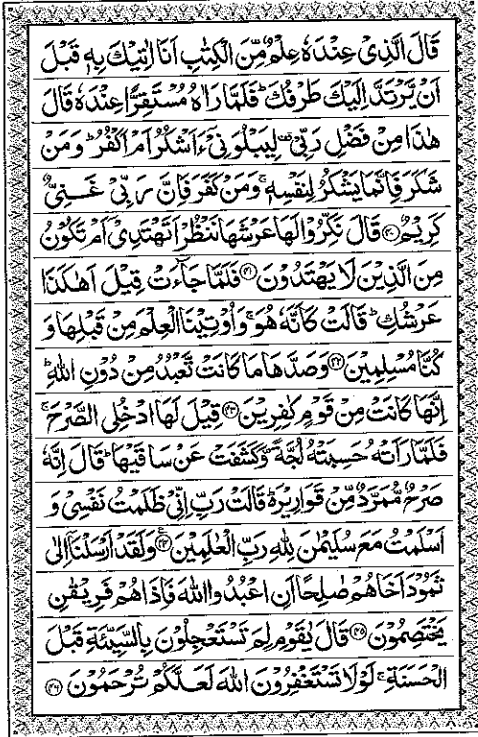 قَالَ الَّذِیْ عِنْدَهٗ عِلْمٌ مِّنَ الْكِتٰبِ اَنَا اٰتِیْكَ بِهٖ قَبْلَ
اَنْ یَّرْتَدَّ اِلَیْكَ طَرْفُكَ ؕ فَلَمَّا رَاٰهُ مُسْتَقِرًّا عِنْدَهٗ قَالَ
هٰذَا مِنْ فَضْلِ رَبِّیْ ۫ۖ لِیَبْلُوَنِیْۤ ءَاَشْكُرُ اَمْ اَكْفُرُ ؕ وَمَنْ
شَكَرَ فَاِنَّمَا یَشْكُرُ لِنَفْسِهٖ ۚ وَمَنْ كَفَرَ فَاِنَّ رَبِّیْ غَنِیٌّ
كَرِیْمٌ ﴿۴۰﴾ قَالَ نَكِّرُوْا لَهَا عَرْشَهَا نَنْظُرْ اَتَهْتَدِیْۤ اَمْ تَكُوْنُ
مِنَ الَّذِیْنَ لَا یَهْتَدُوْنَ ﴿۴۱﴾ فَلَمَّا جَآءَتْ قِیْلَ اَهٰكَذَا
عَرْشُكِ ؕ قَالَتْ كَاَنَّهٗ هُوَ ۚ وَاُوْتِیْنَا الْعِلْمَ مِنْ قَبْلِهَا وَ
كُنَّا مُسْلِمِیْنَ ﴿۴۲﴾ وَصَدَّهَا مَا كَانَتْ تَّعْبُدُ مِنْ دُوْنِ اللّٰهِ ؕ
اِنَّهَا كَانَتْ مِنْ قَوْمٍ كٰفِرِیْنَ ﴿۴۳﴾ قِیْلَ لَهَا ادْخُلِی الصَّرْحَ ۚ
فَلَمَّا رَاَتْهُ حَسِبَتْهُ لُجَّةً وَّكَشَفَتْ عَنْ سَاقَیْهَا ؕ قَالَ اِنَّهٗ
صَرْحٌ مُّمَرَّدٌ مِّنْ قَوَارِیْرَ ؕ۬ قَالَتْ رَبِّ اِنِّیْ ظَلَمْتُ نَفْسِیْ وَ
اَسْلَمْتُ مَعَ سُلَیْمٰنَ لِلّٰهِ رَبِّ الْعٰلَمِیْنَ ﴿۴۴﴾ وَلَقَدْ اَرْسَلْنَاۤ اِلٰی
ثَمُوْدَ اَخَاهُمْ صٰلِحًا اَنِ اعْبُدُوا اللّٰهَ فَاِذَا هُمْ فَرِیْقٰنِ
یَخْتَصِمُوْنَ ﴿۴۵﴾ قَالَ یٰقَوْمِ لِمَ تَسْتَعْجِلُوْنَ بِالسَّیِّئَةِ قَبْلَ
الْحَسَنَةِ ۚ لَوْلَا تَسْتَغْفِرُوْنَ اللّٰهَ لَعَلَّكُمْ تُرْحَمُوْنَ ﴿۴۶﴾